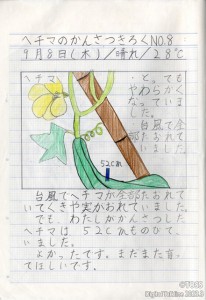 ヘチマのかんさつきろくNO.8
9月8日(木)/晴れ/28℃
ヘチマ
・とっても
やわらかく
なっていま
した。
台風で全
部たおれて
52cm
台風でヘチマが全部たおれて
いてくきや実がおれていました。
でも、わたしがかんさつした
ヘチマは52cmものびて
いました。
よかったです。まだまだ育って
ほしいです。
©TOSS